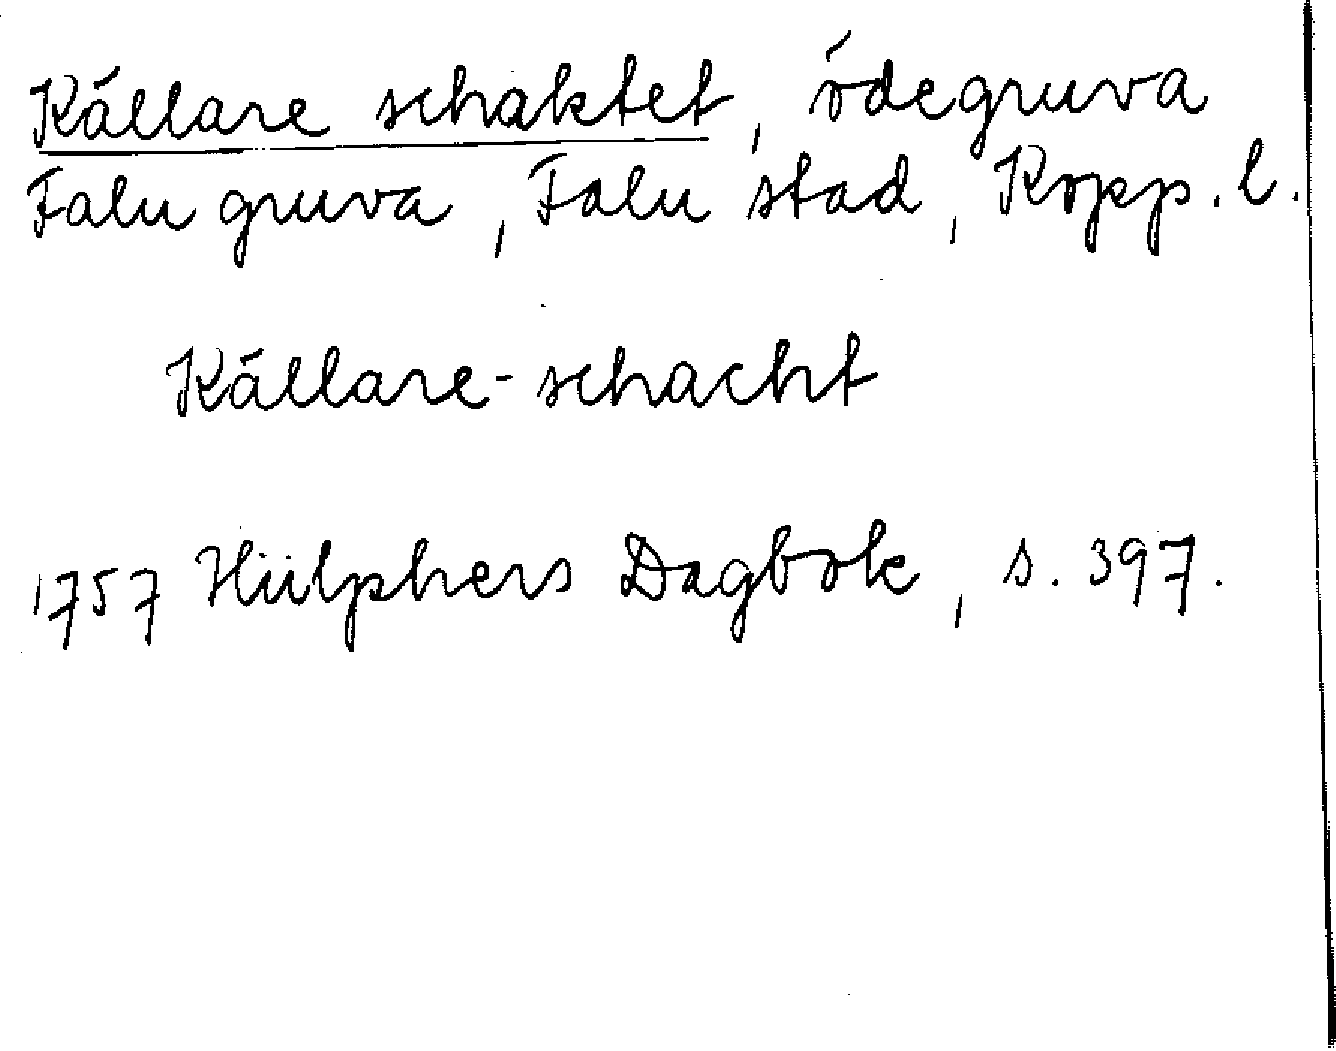 Källare schaktet, ödegruva
Falu gruva, Falu stad, Kopp. l.
Källare-schacht
1757 Hülphers Dagbok, s. 397.